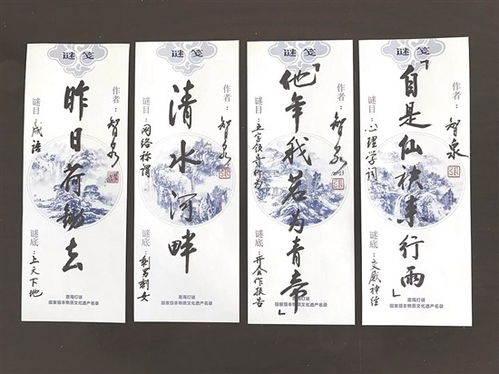 谜笺
作者：智泉
昨日荷锄去
谜目：成语
谜底：上天下地
澄海灯谜
国家级非物质文化遗产名录
谜笺
作者：智泉
清水河畔
谜目：网络称谓
谜底：剩男剩女
澄海灯谜
国家级非物质文化遗产名录
谜笺
作者：智泉
「他年我若为青帝」
谜目：五字
谜底：作报告
澄海灯谜
国家级非物质文化遗产名录
谜笺
作者：智泉
「自是仙行雨」
谜目：心理学词
谜底：交感神经
澄海灯谜
国家级非物质文化遗产名录